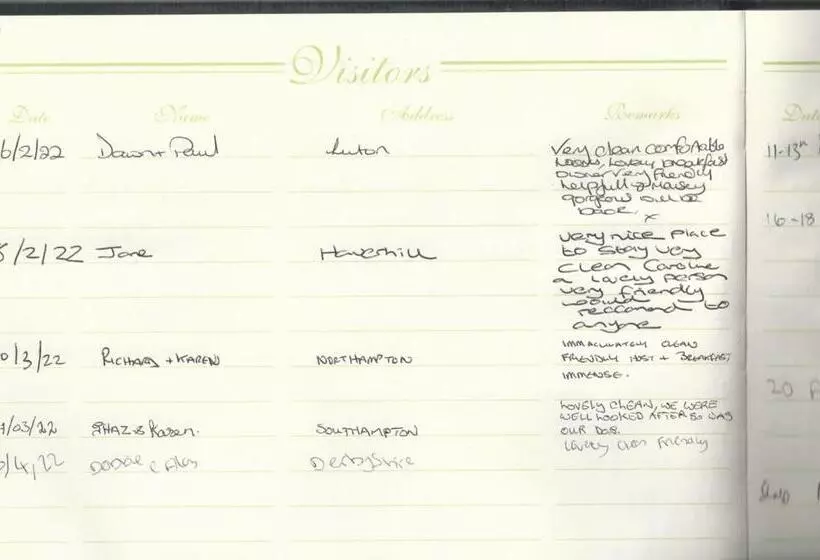 Visitors
Date Name Address Remarks Dat
6/2/22 Dawn + Paul Luton Very clean comfortable
lovely breakfast
owner very friendly
helpfull & Maisey
gorgeous will be
back. x
11-13th
16-18
/2/22 Jane Haverhill very nice place
to stay very
clean Caroline
a lovely person
very friendly
would reccomend to
anyone
0/3/22 RICHARD + KAREN NORTHAMPTON IMMACULATELY CLEAN
FRIENDLY HOST + BREAKFAST
IMMENSE.
20
/03/22 SHAZ & Karen. SOUTHAMPTON LOVELY CLEAN, WE WERE
WELL LOOKED AFTER SO WAS
OUR DOG.
/4/22 Derbyshire Lovely clean friendly